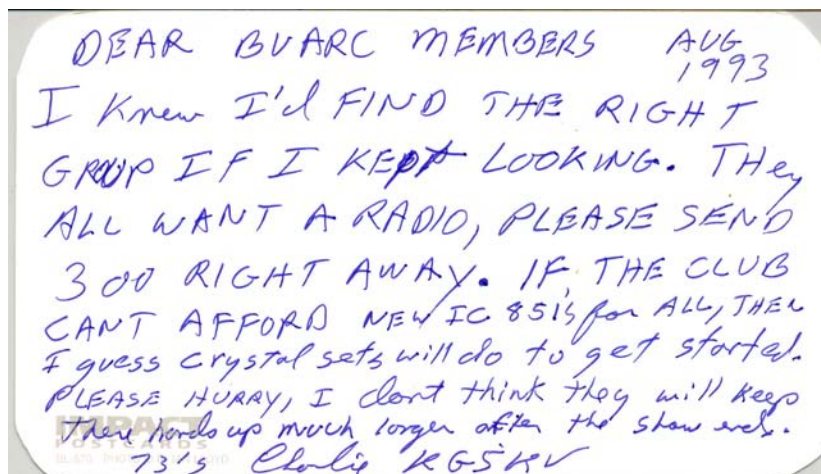 DEAR BVARC MEMBERS AUG
1993
I Knew I'd FIND THE RIGHT
GROUP IF I KEPT LOOKING. THey
ALL WANT A RADIO, PLEASE SEND
300 RIGHT AWAY. IF THE CLUB
CANT AFFORD NEW IC 851s for ALL, THEN
I guess crystal sets will do to get started.
PLEASE HURRY, I dont think they will keep
their hands up much longer after the show ends.
IMPACT
POSTCARDS
73's Charlie KG5KV